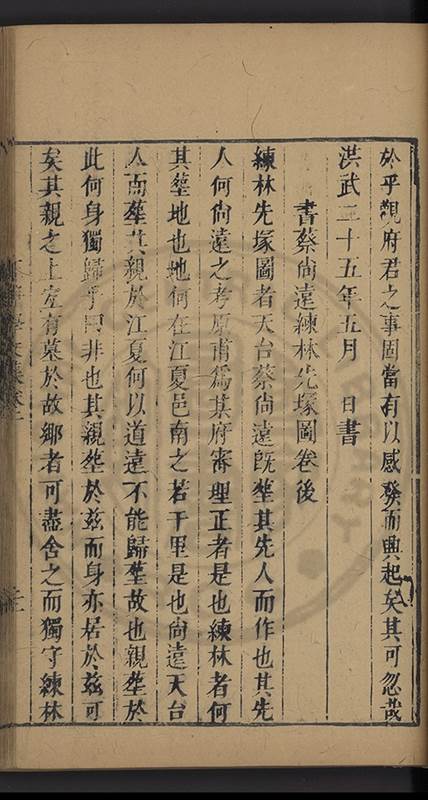 於乎觀府君之事固當有以感發而興起矣其可忽哉
洪武二十五年五月　日書
書蔡尚遠練林先塚圖卷後
練林先塚圖者天台蔡尚遠既塟其先人而作也其先
人何尚遠之考原甫爲其府審理正者是也練林者何
其塟地也地何在江夏邑南之若干里是也尚遠天台
人而塟其親於江夏何以道遠不能歸塟故也親塟於
此何身獨歸乎曰非也其親塟於兹而身亦居於兹可
矣其親之上室有墓於故鄉者可盡舍之而獨守練林